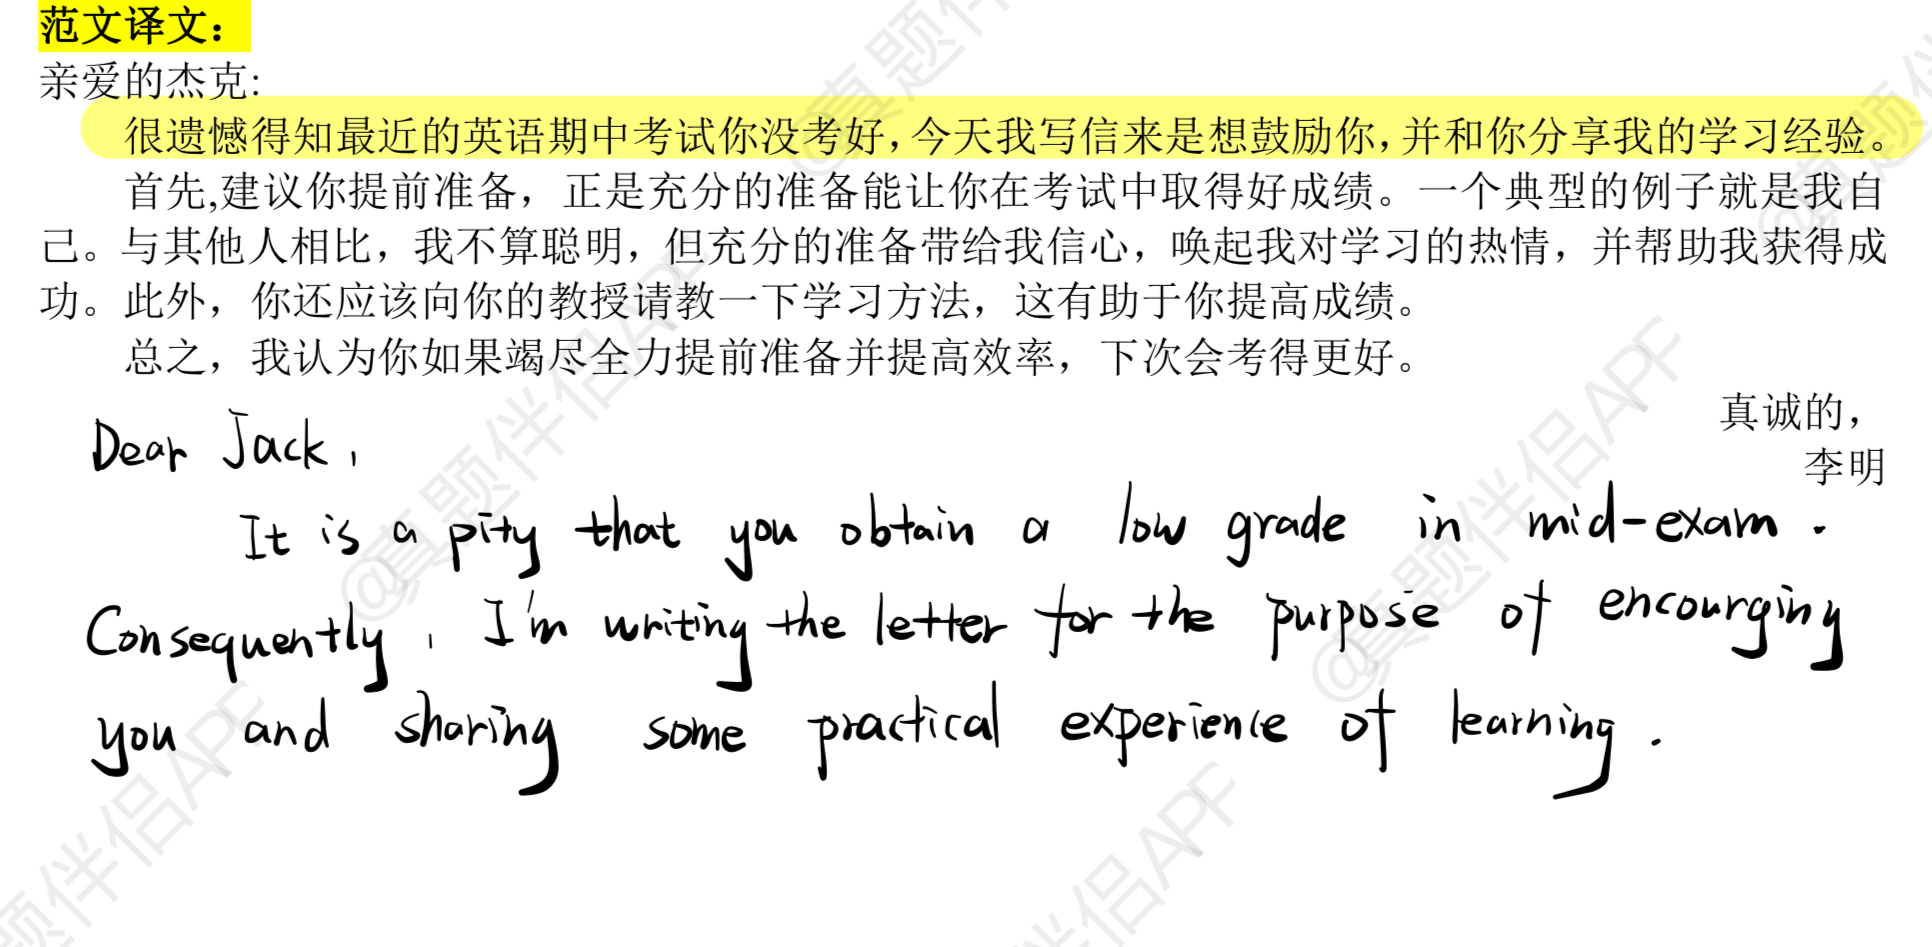 范文译文：
亲爱的杰克:
很遗憾得知最近的英语期中考试你没考好，今天我写信来是想鼓励你，并和你分享我的学习经验。
首先,建议你提前准备，正是充分的准备能让你在考试中取得好成绩。一个典型的例子就是我自
己。与其他人相比，我不算聪明，但充分的准备带给我信心，唤起我对学习的热情，并帮助我获得成
功。此外，你还应该向你的教授请教一下学习方法，这有助于你提高成绩。
总之，我认为你如果竭尽全力提前准备并提高效率，下次会考得更好。
真诚的，
李明
Dear Jack,
It is a pity that you obtain a low grade in mid-exam.
Consequently, I'm writing the letter for the purpose of encourging
you and sharing some practical experience of learning.
@真题伴侣APP